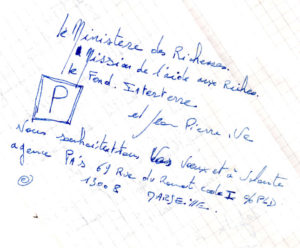 le Ministere des Richesses.
Mission de l'aide aux Riches.
le Fond. Interterre
P
et Jean Pierre. Ve
Nous souhaitettons Vos Voeux et à
agence 69 Rue du code I 96 PED
13008
MARSEILLE.